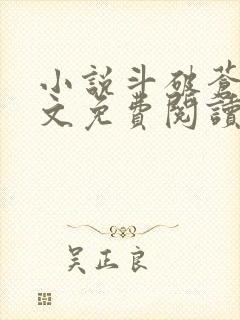 小説斗破蒼
文免費閱讀
吴正良